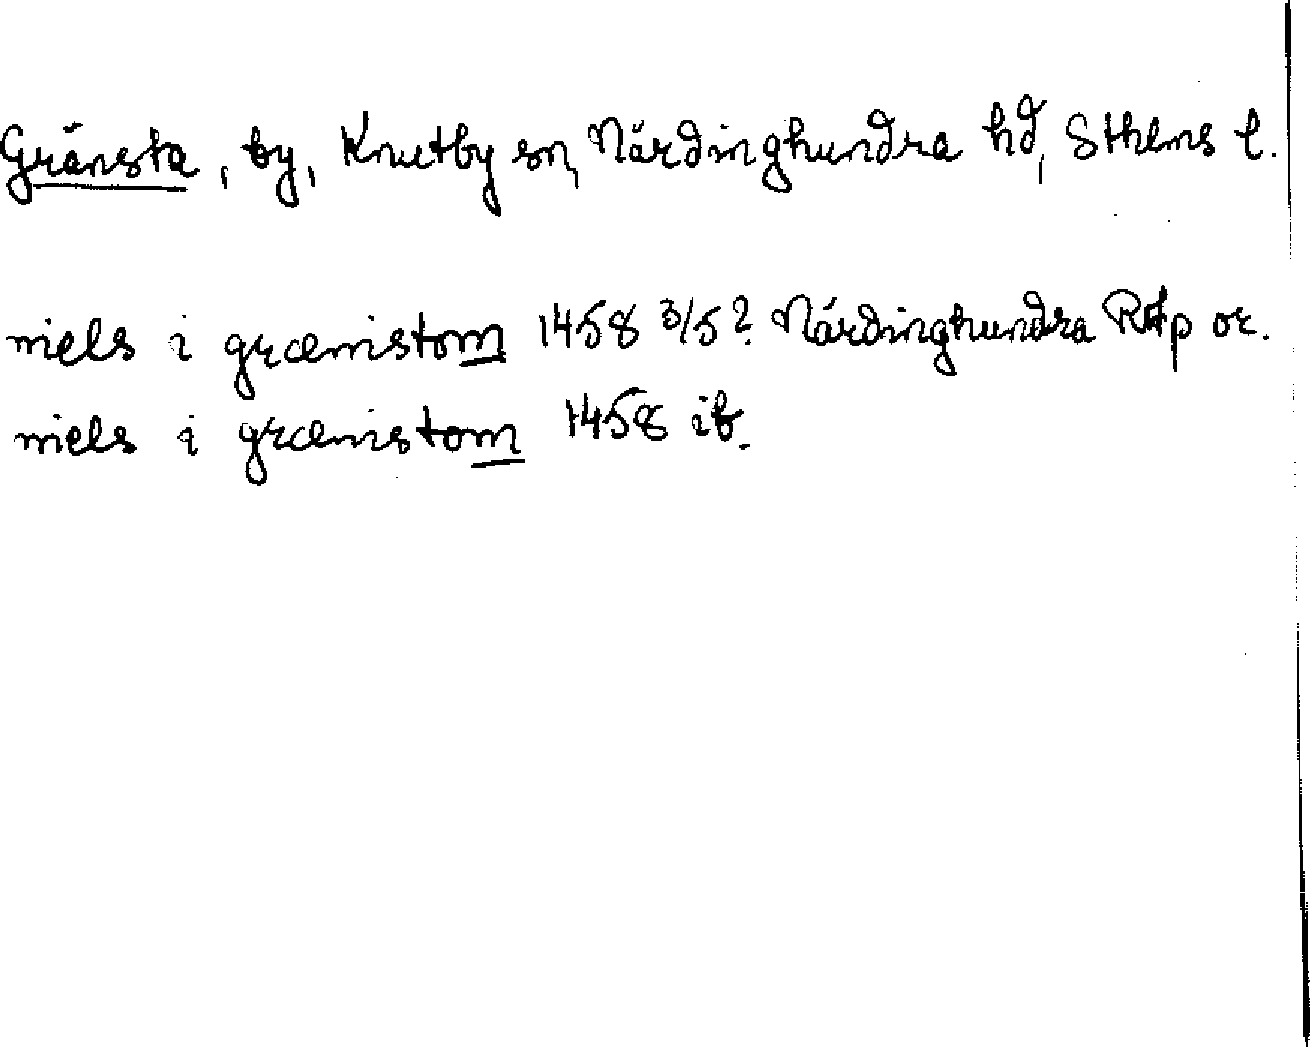 Gränsta, by, Knutby sn, Närdinghundra hd, Sthlms l.
niels i grænistom 1458 3/5? Närdinghundra RAp or.
niels i grænistom 1458 ib.